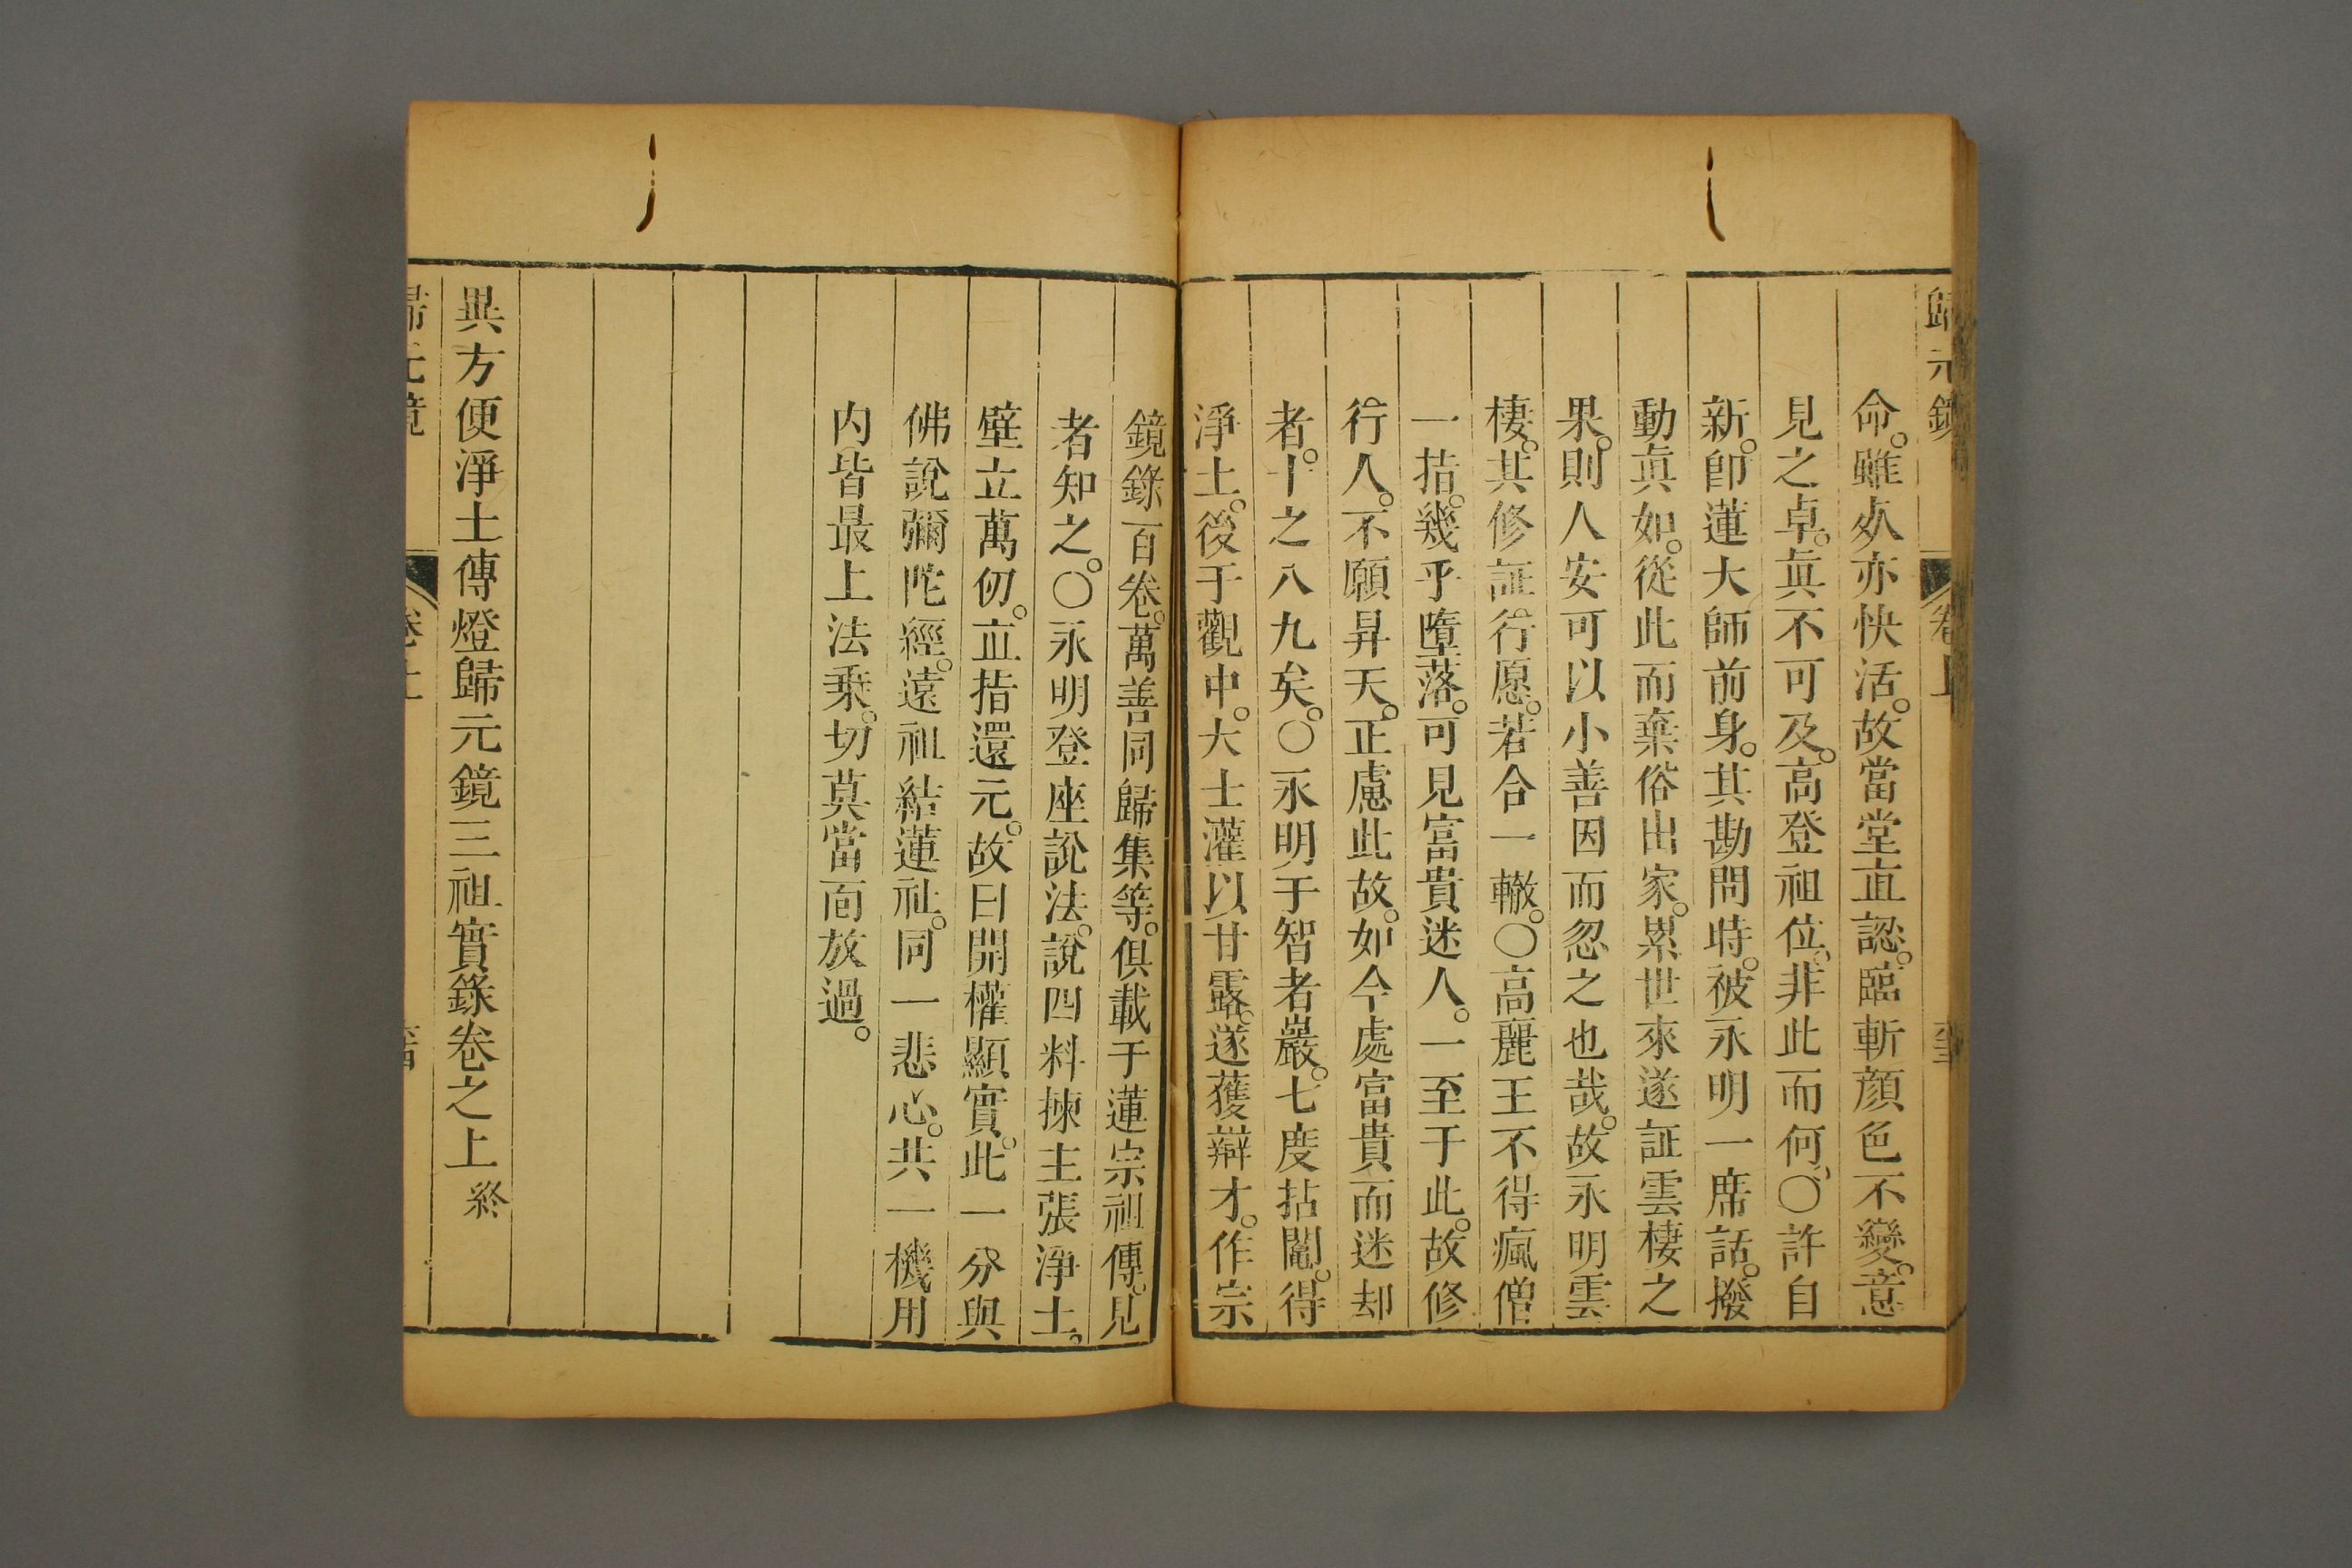 歸元鏡 卷上
命。雖死亦快活。故當堂直認。臨斬顔色不變。意
見之卓。眞不可及。高登祖位。非此而何。〇許自
新。卽蓮大師前身。其勘問時。被永明一席話。撥
動眞如。從此而棄俗出家。累世來遂証雲棲之
果。則人安可以小善因而忽之也哉。故永明雲
棲。其修証行愿。若合一轍。〇高麗王不得瘋僧
一掐。幾乎墮落。可見富貴迷人。一至于此。故修
行人。不願昇天。正慮此故。如今處富貴而迷却
者。十之八九矣。〇永明于智者巖。七度拈鬮。得
淨土。後于觀中。大士灌以甘露。遂獲辯才。作宗
鏡錄百卷。萬善同歸集等。俱載于蓮宗祖傳。見
者知之。〇永明登座說法。說四料揀主張淨土。
壁立萬仞。直指還元。故曰開權顯實。此一分與
佛說彌陀經。遠祖結蓮社。同一悲心。共一機用
内皆最上法乗。切莫當面放過。
異方便淨土傳燈歸元鏡三祖實錄卷之上終